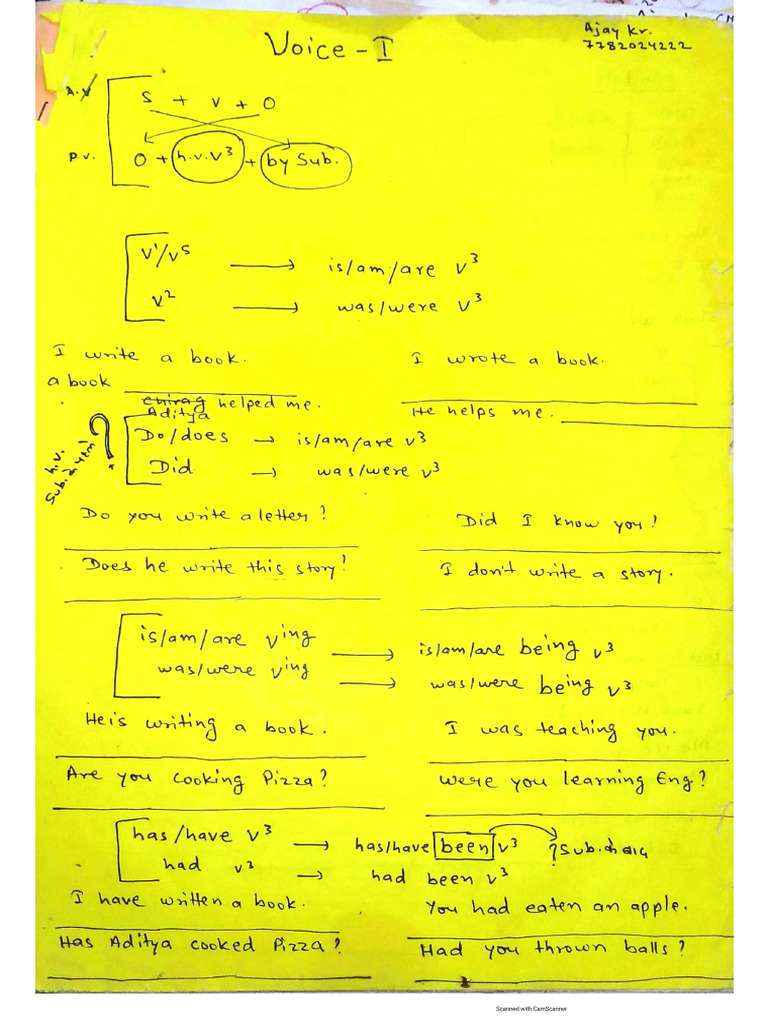 Voice - I
Ajay Kr.
7782024222
A.V
S + V + O
P.V.
O + h.v.V³ + by Sub.
V¹/Vˢ → is/am/are V³
V² → was/were V³
I write a book.
I wrote a book.
a book
Chirag helped me.
Aditya
He helps me.
h.v.
Sub. से पहले
?
Do/does → is/am/are V³
Did → was/were V³
Do you write a letter?
Did I know you?
Does he write this story?
I don't write a story.
is/am/are Ving → is/am/are being V³
was/were Ving → was/were being V³
He is writing a book.
I was teaching you.
Are you cooking Pizza?
Were you learning Eng?
has/have V³ → has/have been V³ ? Sub. के बाद
had V³ → had been V³
I have written a book.
You had eaten an apple.
Has Aditya cooked Pizza?
Had you thrown balls?
Scanned with CamScanner